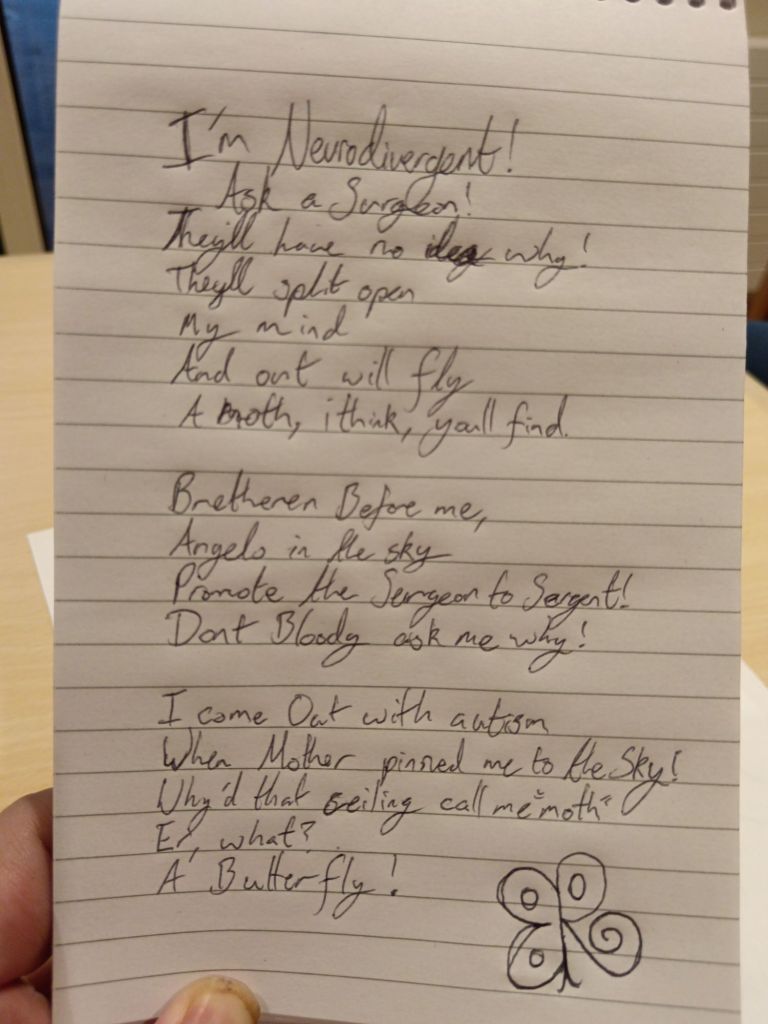 I'm Neurodivergent!
Ask a Surgeon!
They'll have no idea why!
They'll split open
My mind
And out will fly
A Broth, i think, you'll find.
Bretheren Before me,
Angels in the sky
Promote the Surgeon to Sargent!
Dont Bloody ask me why!
I came Out with autism
When Mother pinned me to the Sky!
Why'd that ceiling call me "moth"
Er, what?
A Butterfly!